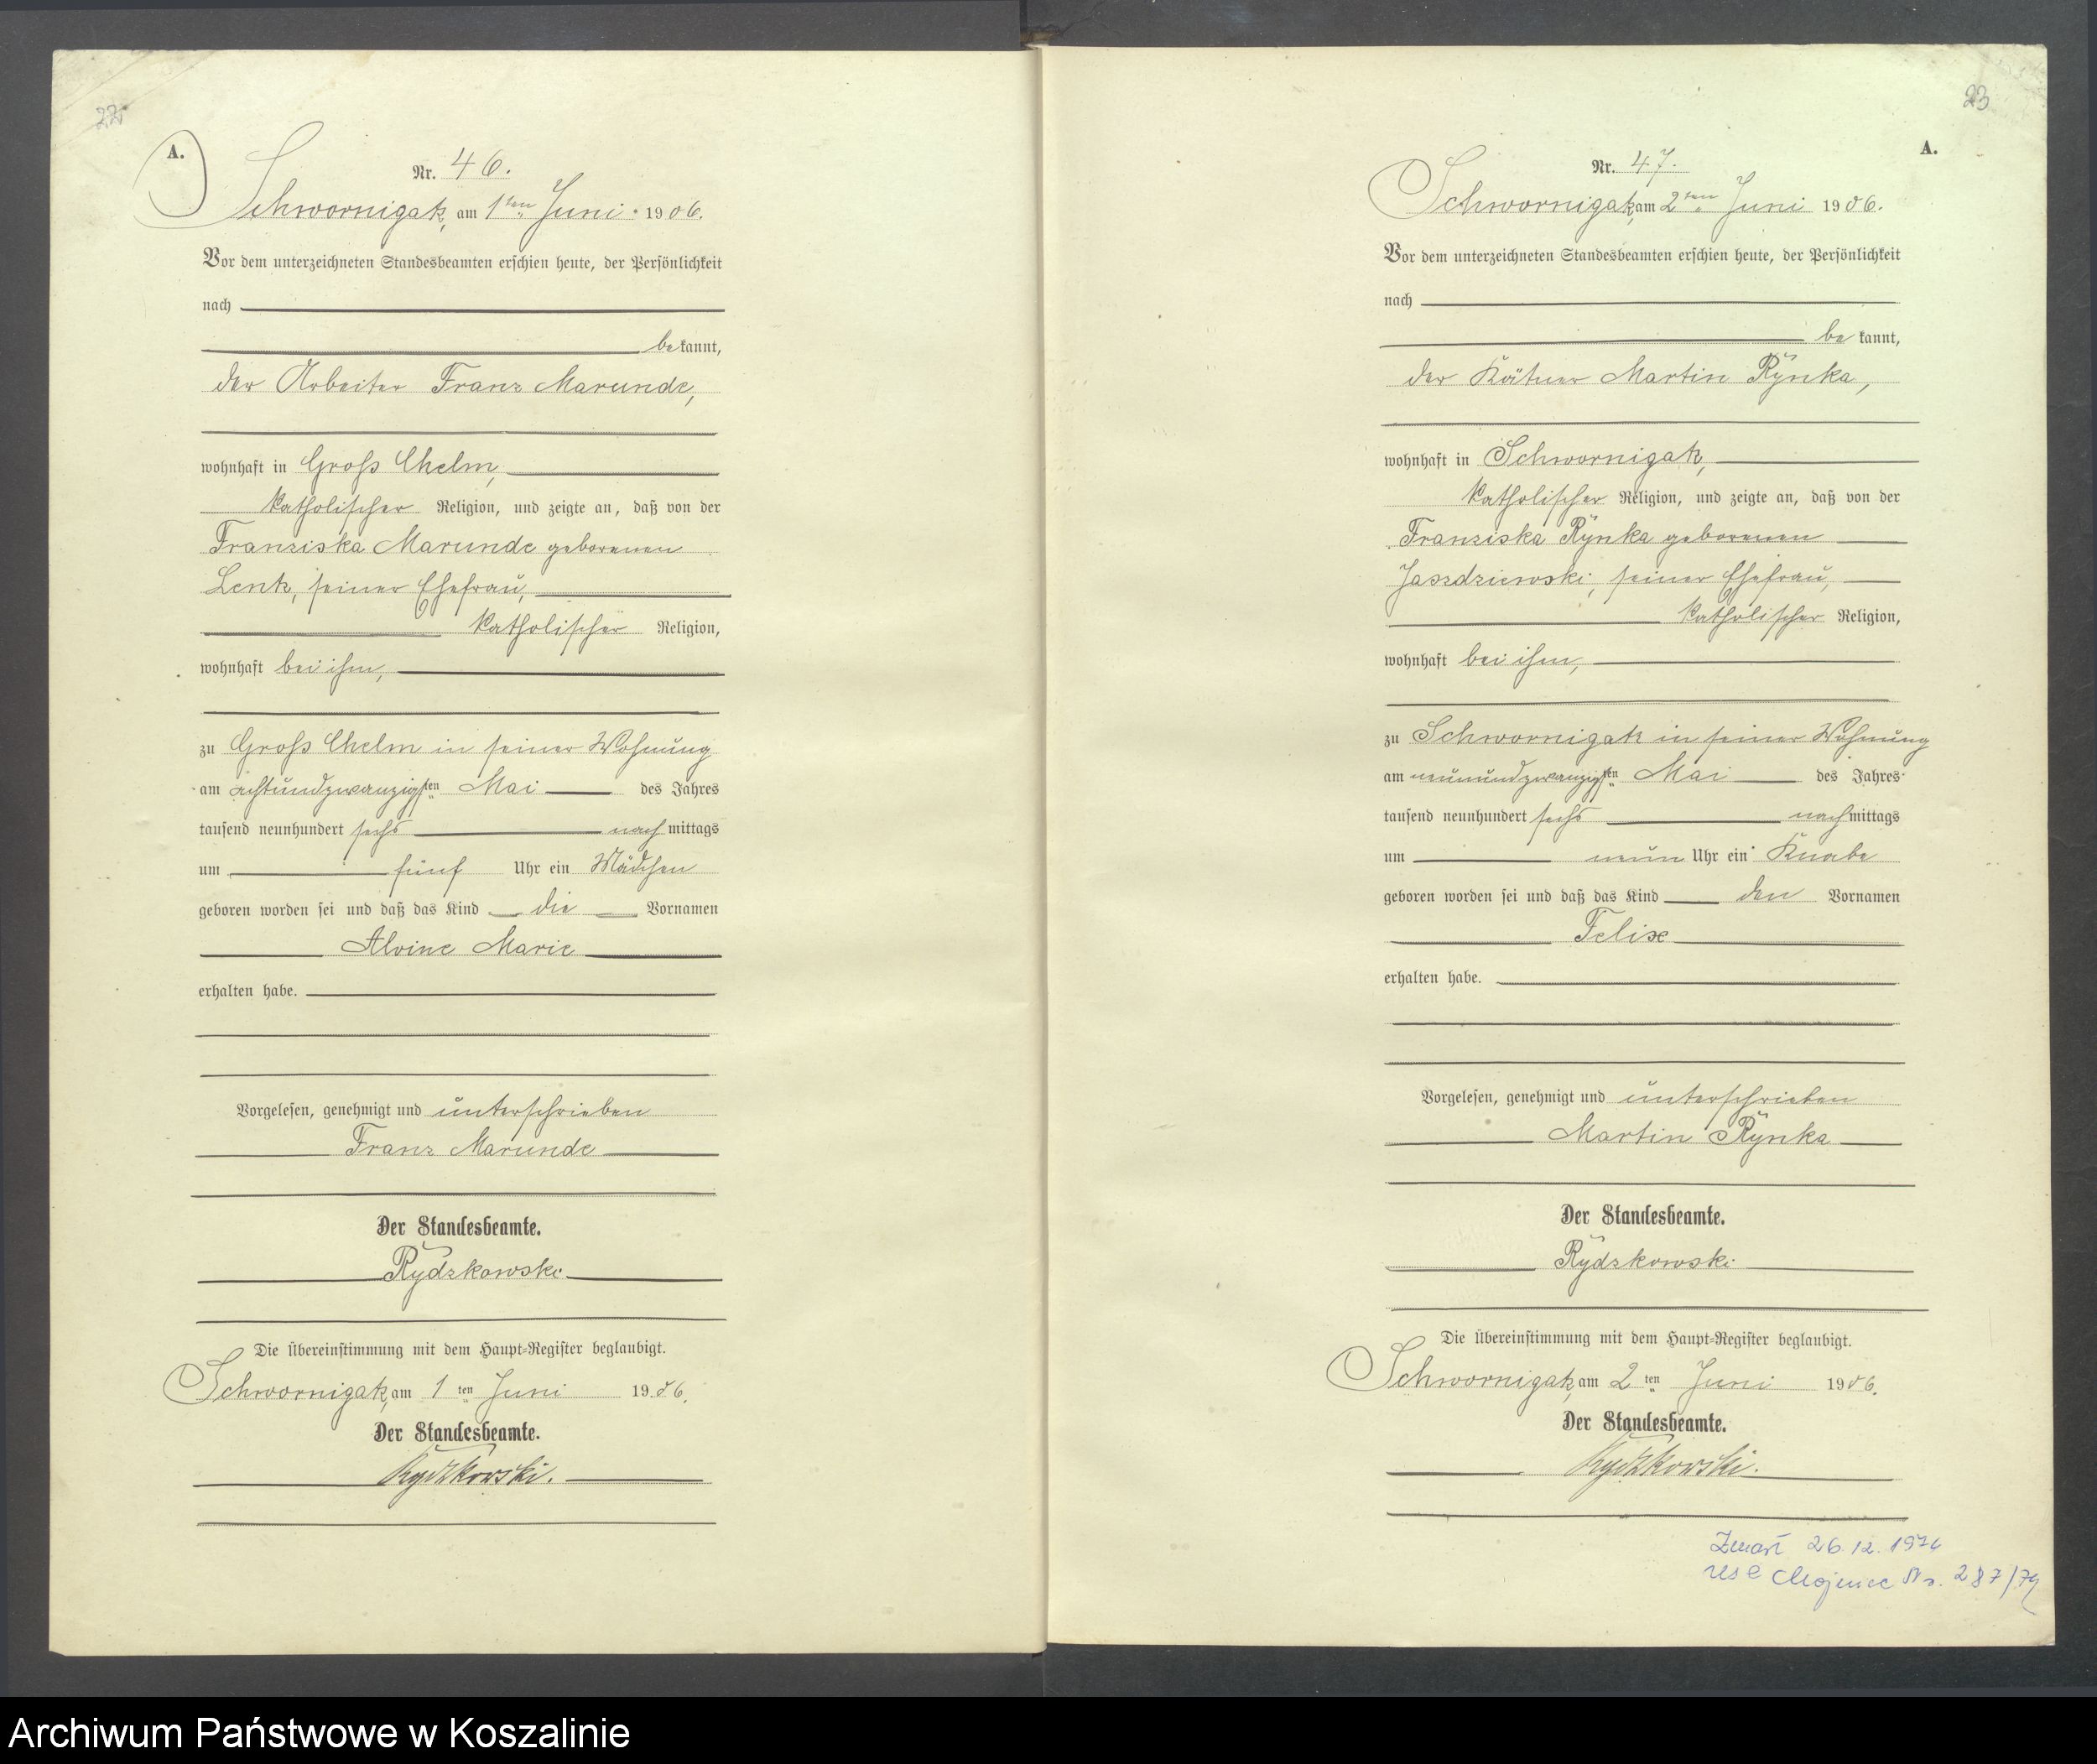 22
A.
Nr. 46.
Schwornigatz, am 1ten Juni 1906.
Vor dem unterzeichneten Standesbeamten erschien heute, der Persönlichkeit
nach
be kannt,
der Arbeiter Franz Marunde,
wohnhaft in Groß Chelm,
katholischer Religion, und zeigte an, daß von der
Franziska Marunde geborenen
Lenk, seiner Ehefrau,
katholischer Religion,
wohnhaft bei ihm,
zu Groß Chelm in seiner Wohnung
am achtundzwanzigsten Mai des Jahres
tausend neunhundert sechs nach mittags
um fünf Uhr ein Mädchen
geboren worden sei und daß das Kind die Vornamen
Alvine Marie
erhalten habe.
Vorgelesen, genehmigt und unterschrieben
Franz Marunde
Der Standesbeamte.
Rydzkowski
Die Übereinstimmung mit dem Haupt-Register beglaubigt.
Schwornigatz, am 1 ten Juni 1906.
Der Standesbeamte.
Rydzkowski.
23
A.
Nr. 47.
Schwornigatz, am 2ten Juni 1906.
Vor dem unterzeichneten Standesbeamten erschien heute, der Persönlichkeit
nach
be kannt,
der Kätner Martin Rynka,
wohnhaft in Schwornigatz,
katholischer Religion, und zeigte an, daß von der
Franziska Rynka geborenen
Jaszdziewski, seiner Ehefrau,
katholischer Religion,
wohnhaft bei ihm,
zu Schwornigatz in seiner Wohnung
am neunundzwanzigsten Mai des Jahres
tausend neunhundert sechs nach mittags
um neun Uhr ein Knabe
geboren worden sei und daß das Kind den Vornamen
Felix
erhalten habe.
Vorgelesen, genehmigt und unterschrieben
Martin Rynka
Der Standesbeamte.
Rydzkowski
Die Übereinstimmung mit dem Haupt-Register beglaubigt.
Schwornigatz, am 2 ten Juni 1906.
Der Standesbeamte.
Rydzkowski.
Zmarł 26.12.1974
Chojnice Nr. 287/74
Archiwum Państwowe w Koszalinie